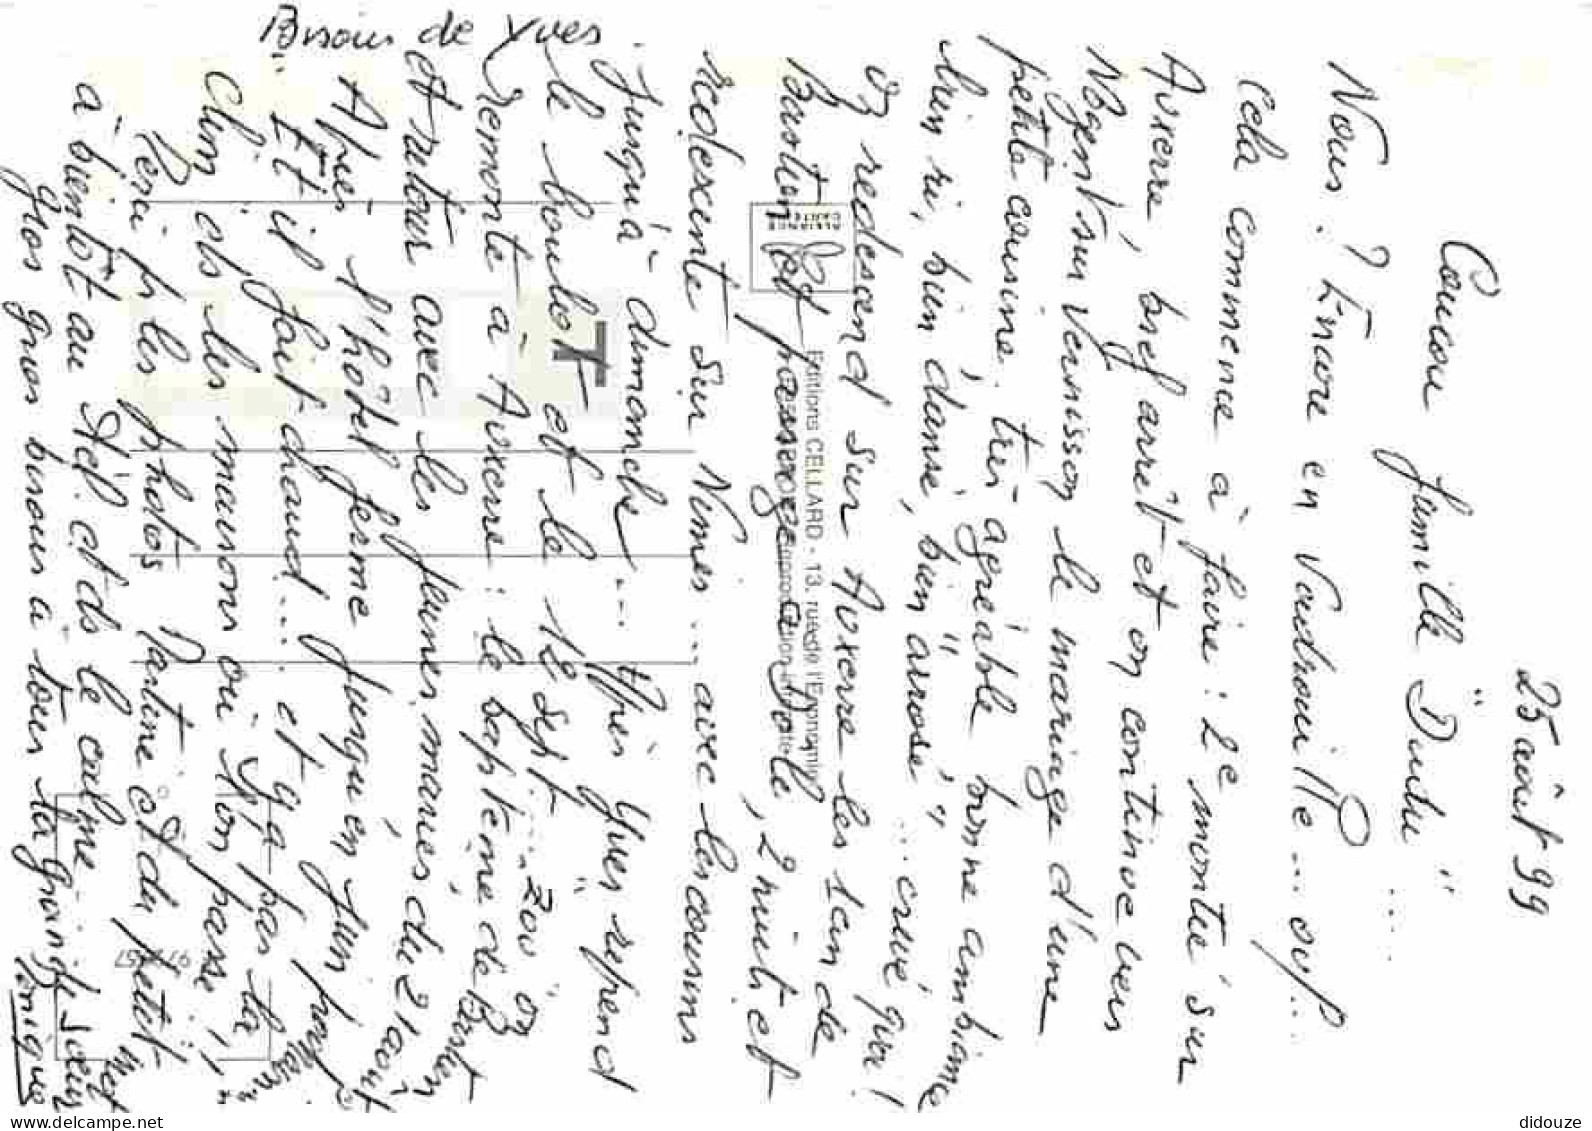 25 août 99
Coucou famille "Dudu"....
Nous ? Encore en Vadrouille... ouf...
Cela commence à faire : 2e montée sur
Auxerre, bref arrêt et on continue vers
Nogent sur Vernisson le mariage d'une
petite cousine. très agréable bonne ambiance
bien ri, bien dansé, bien "arrosé"... crevé quoi !
on redescend sur Auxerre les 1 an de
Bastien et passage à Dole, 2 nuits et
redescente sur Nimes... avec les cousins
Jusqu'à dimanche... Après Yves reprend
le boulot et le 12 sept.... zou on
remonte à Auxerre : le baptême de Bastien
et retour avec les jeunes mariés du 21 août
Après l'hôtel ferme jusqu'en juin
Et il fait chaud... et y a pas la
Clim ds les maisons où l'on passe !!
Merci pr les photos Martine et du petit mot
à bientôt au tél et ds le calme
gros gros bisous à tous la grande soeur
Monique
Bisous de Yves
ALLIANCE
CARTE
Editions CELLARD - 13, rue de l'Epnomin
T